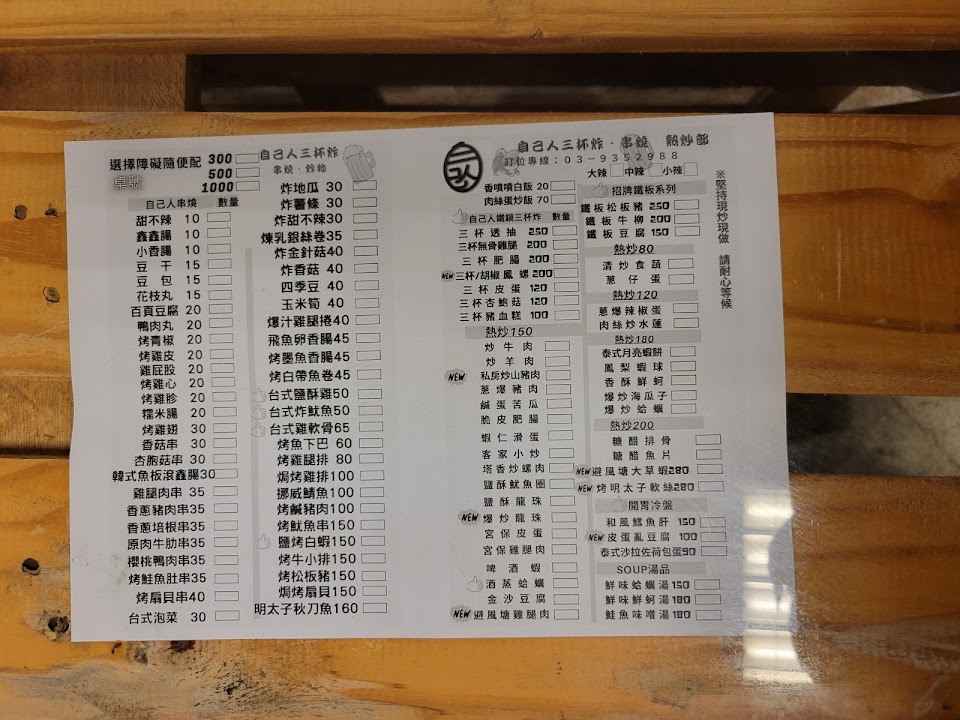 選擇障礙隨便配 300
500
桌號
1000
自己人串燒 數量
甜不辣 10
鑫鑫腸 10
小香腸 10
豆干 15
豆包 15
花枝丸 15
百頁豆腐 20
鴨肉丸 20
烤青椒 20
烤雞皮 20
雞屁股 20
烤雞心 20
烤雞胗 20
糯米腸 20
烤雞翅 30
香菇串 30
杏胞菇串 30
韓式魚板滾鑫腸30
雞腿肉串 35
香蔥豬肉串35
香蔥培根串35
原肉牛肋串35
櫻桃鴨肉串35
烤鮭魚肚串35
烤扇貝串40
台式泡菜 30
自己人三杯炸
串燒．炸物
炸地瓜 30
炸薯條 30
炸甜不辣30
煉乳銀絲卷35
炸金針菇40
炸香菇 40
四季豆 40
玉米筍 40
爆汁雞腿捲40
飛魚卵香腸45
烤墨魚香腸45
烤白帶魚卷45
台式鹽酥雞50
台式炸魷魚50
台式雞軟骨65
烤魚下巴 60
烤雞腿排 80
焗烤雞排100
挪威鯖魚100
烤鹹豬肉100
烤魷魚串150
鹽烤白蝦150
烤牛小排150
烤松板豬150
焗烤扇貝150
明太子秋刀魚160
自己人三杯炸．串燒 熱炒部
訂位專線：03－9352988
大辣 中辣 小辣
香噴噴白飯 20
肉絲蛋炒飯 70
自己人鐵鍋三杯炸 數量
三杯透抽 250
三杯無骨雞腿 200
三杯肥腸 200
NEW 三杯/胡椒鳳螺200
三杯皮蛋 120
三杯杏鮑菇 120
三杯豬血糕 100
熱炒150
炒牛肉
炒羊肉
NEW 私房炒山豬肉
蔥爆豬肉
鹹蛋苦瓜
脆皮肥腸
蝦仁滑蛋
客家小炒
塔香炒螺肉
鹽酥魷魚圈
鹽酥龍珠
NEW 爆炒龍珠
宮保皮蛋
宮保雞腿肉
啤酒蝦
酒蒸蛤蠣
金沙豆腐
NEW 避風塘雞腿肉
招牌鐵板系列
鐵板松板豬 250
鐵板牛柳 200
鐵板豆腐 150
熱炒80
清炒食蔬
蔥仔蛋
熱炒120
蔥爆辣椒蛋
肉絲炒水蓮
熱炒180
泰式月亮蝦餅
鳳梨蝦球
香酥鮮蚵
爆炒海瓜子
爆炒蛤蠣
熱炒200
糖醋排骨
糖醋魚片
NEW 避風塘大草蝦280
NEW 烤明太子軟絲280
開胃冷盤
和風鱈魚肝 150
NEW 皮蛋亂豆腐 100
泰式沙拉佐荷包蛋90
SOUP湯品
鮮味蛤蠣湯150
鮮味鮮蚵湯180
鮭魚味噌湯180
※堅持現炒現做 請耐心等候